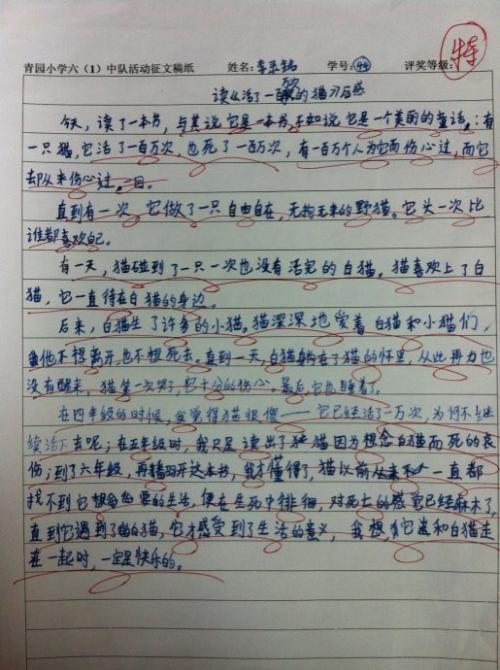 青园小学六（1）中队活动征文稿纸 姓名: 李 学号: 44 评奖等级: 特
读《活了一百万次的猫》有感
今天，读了一本书，与其说它是一本书，不如说它是一个美丽的童话。：有
一只猫，它活了一百万次，也死了一百万次，有一百万个人为它而伤心过，而它
却从来伤心过。一回。
直到有一次，它做了一只自由自在，无拘无束的野猫。它头一次比
谁都喜欢自己。
有一天，猫碰到了一只一次也没有活完的白猫。猫喜欢上了白
猫，它一直待在白猫的身边。
后来，白猫生了许多的小猫。猫深深地爱着白猫和小猫们，
他不想离开，也不想死去。直到一天，白猫躺在了猫的怀里，从此再力也
没有醒来，猫第一次哭了，它十分的伤心。最后它也睡着了。
在四年级的时候，我觉得猫很傻——它已经活了一万次，为何不继
续活下去呢；在五年级时，我只是读出了猫因为想念白猫而死的哀
伤；到了六年级，再翻开这本书，我才懂得了，猫以前从来不一直都
找不到它想要的生活，便在生死中徘徊，对死亡的感官已经麻木了，
直到它遇到了白的猫，它才感受到了生活的意义，我想，当它能和白猫走
在一起时，一定是快乐的。